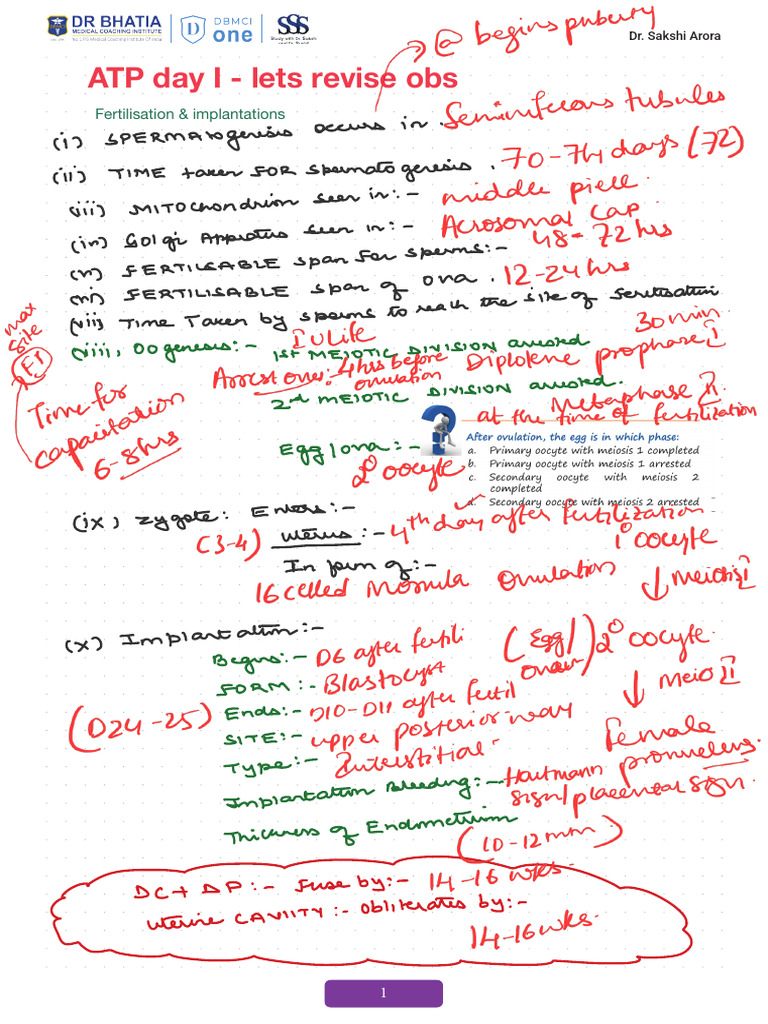 DR BHATIA
MEDICAL COACHING INSTITUTE
DBMCI
one
SSS
Dr. Sakshi Arora
@ begins puberty
ATP day I - lets revise obs
Fertilisation & implantations
(i) SPERMAtogenesis occurs in. Seminiferous tubules
(ii) TIME taken FOR Spermatogenesis. 70-74 days (72)
(iii) MITOchondrion seen in:- middle piece.
(iv) Golgi Apparatus seen in:- Acrosomal Cap
(v) FERTILISABLE span for sperms:- 48-72 hrs
(vi) FERTILISABLE span of ova. 12-24 hrs
(vii) Time Taken by sperms to reach the site of
30 min
max
site
(viii) Oogenesis:- IU life
1st MEIOTIC DIVISION arrested Diplotene prophase I
Arrest over: 4 hrs before ovulation
2nd MEIOTIC DIVISION arrested. Metaphase II
at the time of fertilization
Time for
capacitation
6-8 hrs
After ovulation, the egg is in which phase:
a. Primary oocyte with meiosis 1 completed
b. Primary oocyte with meiosis 1 arrested
c. Secondary oocyte with meiosis 2
completed
d. Secondary oocyte with meiosis 2 arrested
Egg/ova:-
2° oocyte
(ix) Zygote: Enters:-
(3-4) uterus:- 4th day after fertilization
In form of:-
16 celled Morula
1° oocyte
Ovulation ↓ Meiosis I
(Egg/ovum) 2° oocyte.
↓ Meio II
Female
pronucleus.
(x) Implantation:-
Begins:- D6 after fertili
FORM:- Blastocyst
(D24-25) Ends:- D10-D11 after fertil
SITE:- upper posterior way
Type:- Interstitial
Implantation Bleeding:- Hartmann
sign/placental sign.
Thickness of Endometrium
(10-12mm)
DC+DP:- Fuse by:- 14-16 wks.
Uterine CAVIITY:- Obliterates by:-
14-16 wks.
1